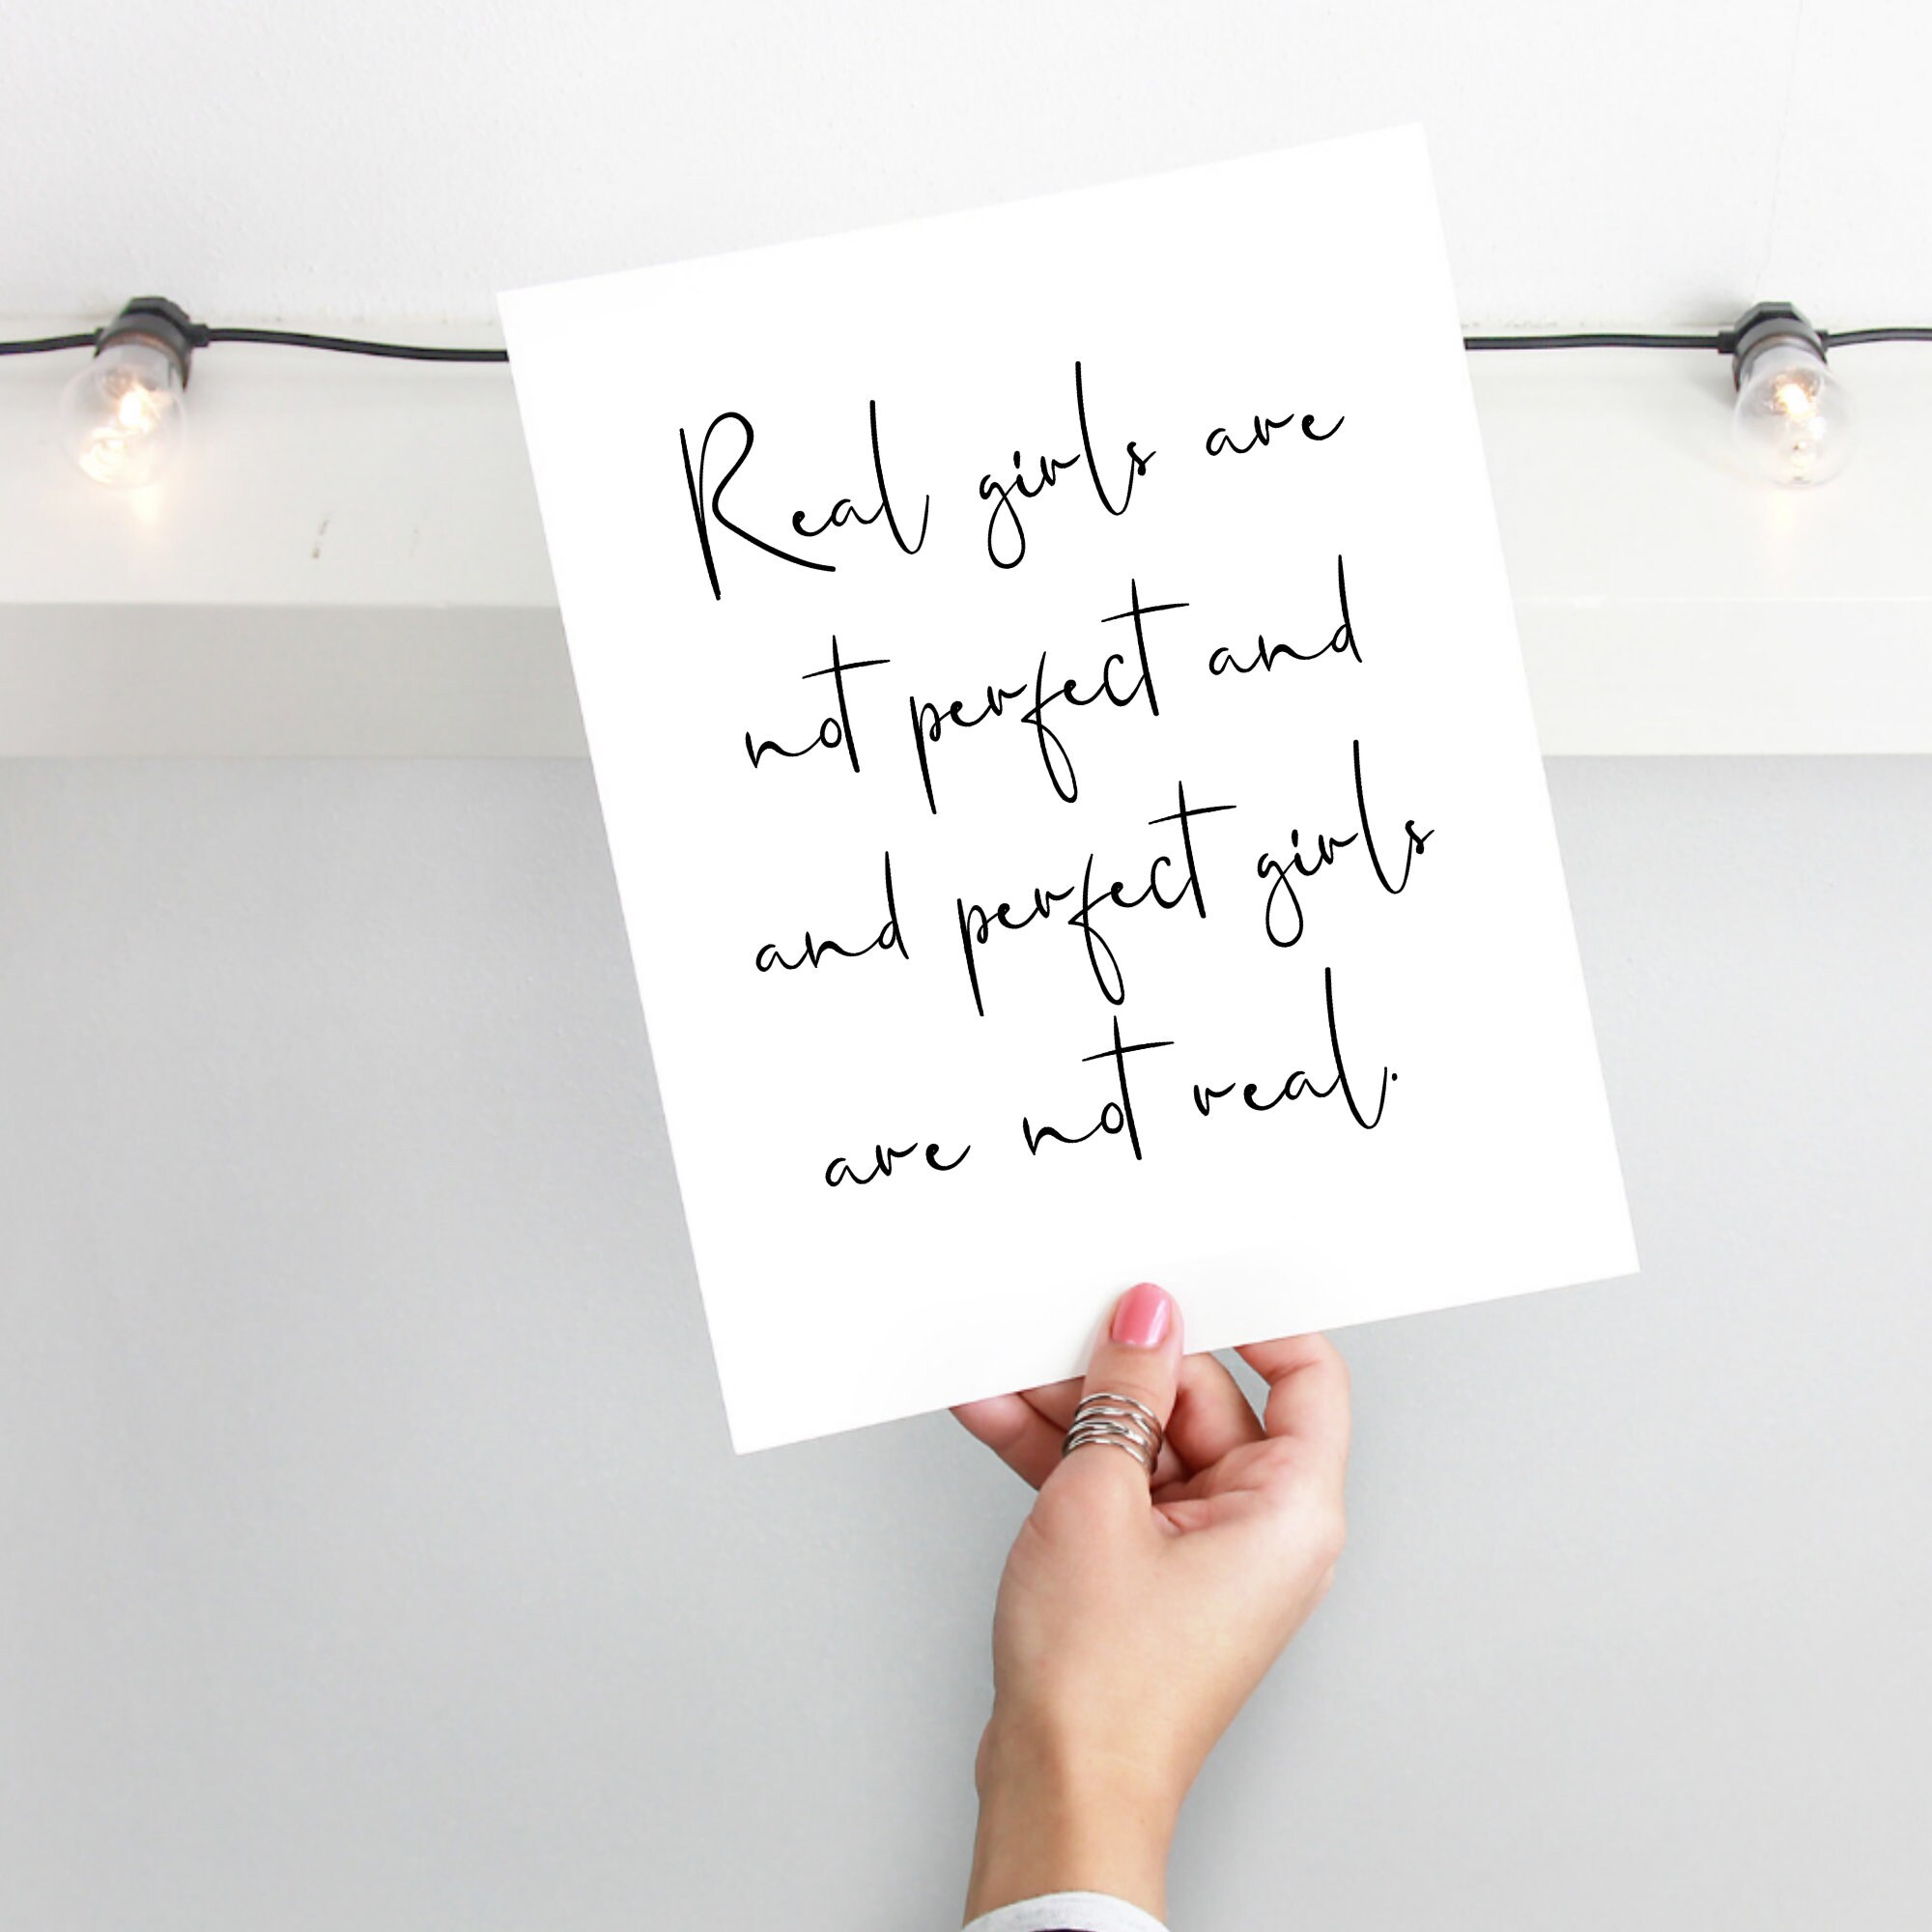 Real girls are
not perfect and
and perfect girls
are not real.